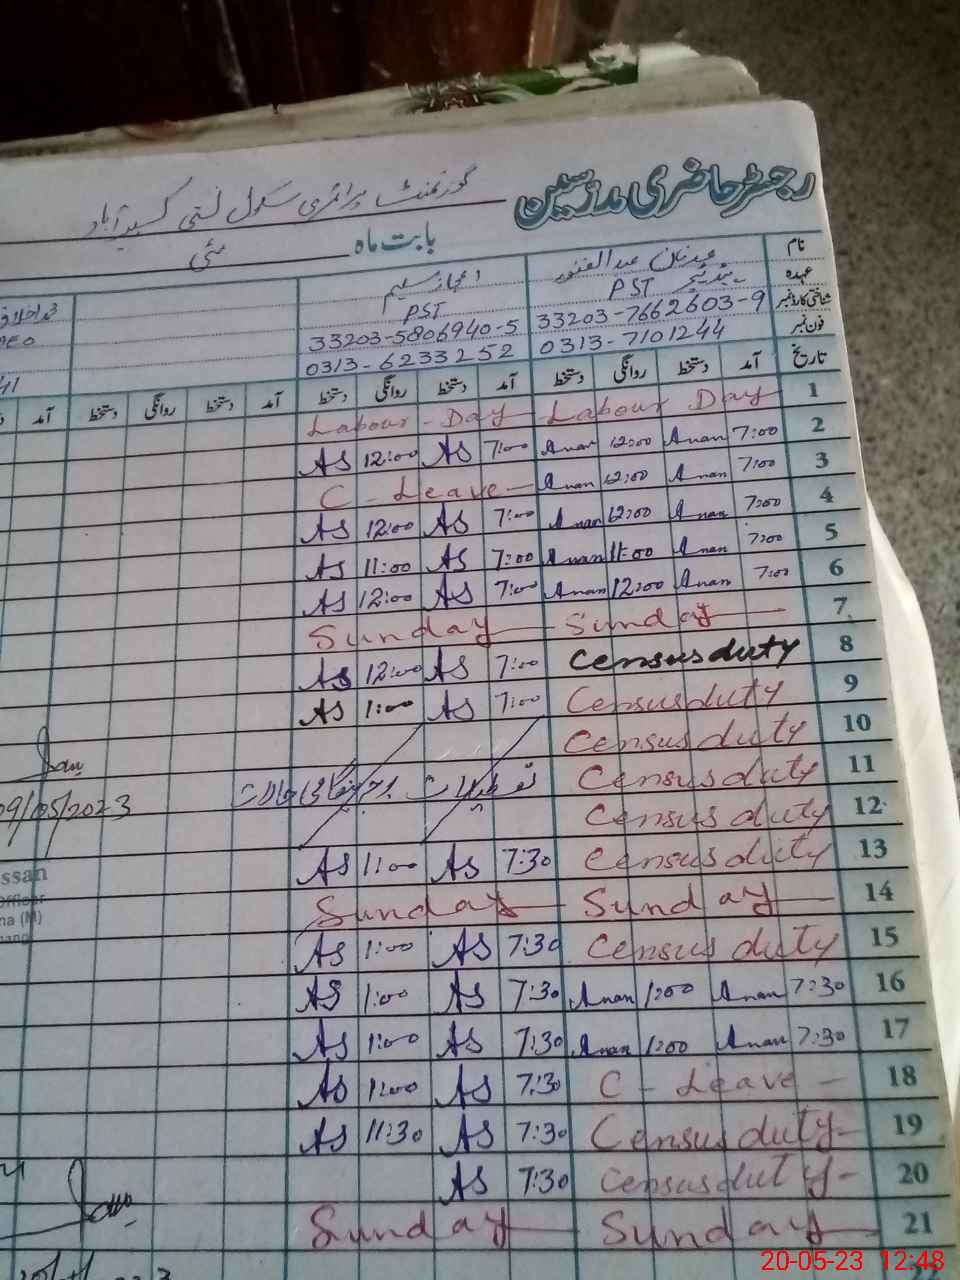 رجسٹر حاضری مدرسین گورنمنٹ پرائمری سکول بستی
بابت ماہ مئی
نام عدنان عبدالغفور اعجاز سلیم
عہدہ PST PST
شناختی کارڈ نمبر 33203-7662603-9 33203-5806940-5
فون نمبر 0313-7101244 0313-6233252
تاریخ آمد دستخط روانگی دستخط آمد دستخط روانگی دستخط آمد دستخط روانگی دستخط آمد
1 Labour Day Labour - Day
2 7:00 Anan 12:00 Anan 7:00 AS 12:00 AS
3 7:00 Anan 12:00 Anan C - Leave -
4 7:00 Anan 12:00 Anan 7:00 AS 12:00 AS
5 7:00 Anan 11:00 Anan 7:00 AS 11:00 AS
6 7:00 Anan 12:00 Anan 7:00 AS 12:00 AS
7 Sunday Sunday
8 Census duty 7:00 AS 12:00 AS
9 Census duty 7:00 AS 1:00 AS
10 Census duty
11 Census duty تعطیلات
12 Census duty
09/05/2023
13 Census duty 7:30 AS 1:00 AS
ssan
Officer
na (M)
14 Sunday Sunday
15 Census duty 7:30 AS 1:00 AS
16 7:30 Anan 1:00 Anan 7:30 AS 1:00 AS
17 7:30 Anan 1:00 Anan 7:30 AS 1:00 AS
18 C - Leave - 7:30 AS 1:00 AS
19 Census duty - 7:30 AS 11:30 AS
20 Census duty - 7:30 AS
21 Sunday Sunday
20-05-23 12:48